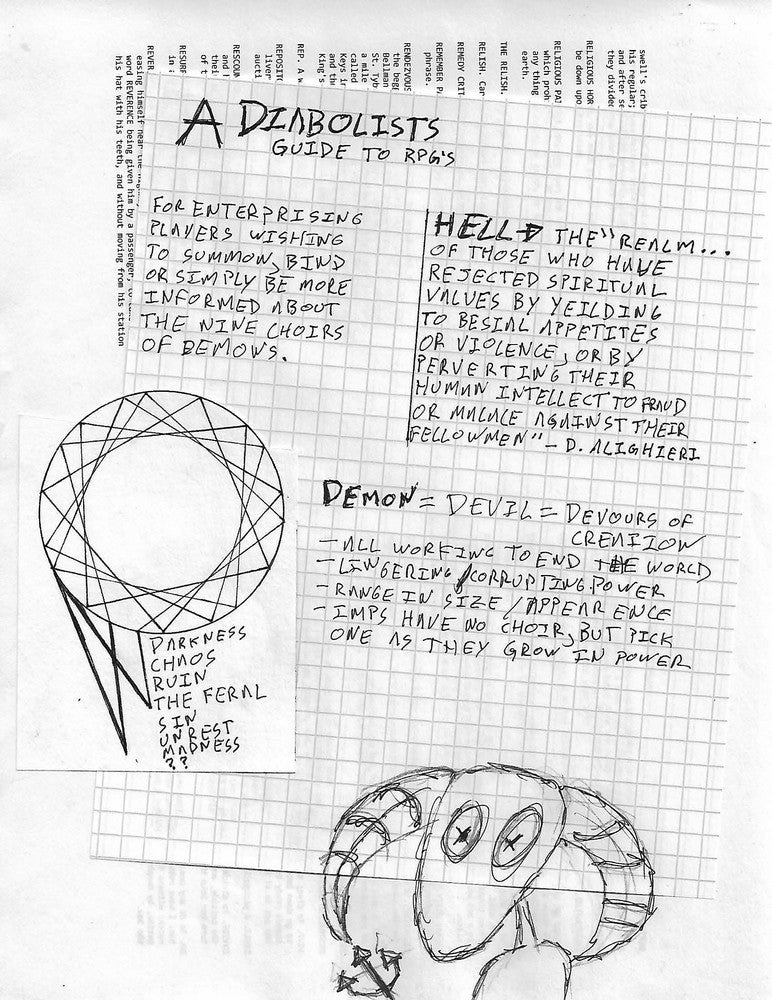 swell's crib
his regular;
and after se
they divided
RELIGIOUS HOR
be down upo
RELIGIOUS PAI
which proh
any thing
earth.
THE RELISH.
RELISH. Car
REMEDY CRIT
REMEMBER PA
phrase.
RENDEZVOUS
the begg
Bellman
St. Tyb
a mile
called
Keys in
and th
King's
REP. A w
REPOSITO
liver
aucti
RESCOUN
and
thei
of t
RESURR
in
REVER
easing himself near the
word REVERENCE being given him by a passenger, to
his hat with his teeth, and without moving from his station
A DIABOLISTS
GUIDE TO RPG'S
FOR ENTERPRISING
PLAYERS WISHING
TO SUMMON, BIND
OR SIMPLY BE MORE
INFORMED ABOUT
THE NINE CHOIRS
OF DEMONS.
HELL → THE "REALM...
OF THOSE WHO HAVE
REJECTED SPIRITUAL
VALUES BY YEILDING
TO BESIAL APPETITES
OR VIOLENCE, OR BY
PERVERTING THEIR
HUMAN INTELLECT TO FRAUD
OR MALACE AGAINST THEIR
FELLOWMEN" - D. ALIGHIERI
DEMON = DEVIL = DEVOURS OF
CREATION
- ALL WORKING TO END THE WORLD
- LINGERING / CORRUPTING POWER
- RANGE IN SIZE / APPEARENCE
- IMPS HAVE NO CHOIR, BUT PICK
ONE AS THEY GROW IN POWER
DARKNESS
CHAOS
RUIN
THE FERAL
SIN
UNREST
MADNESS
??